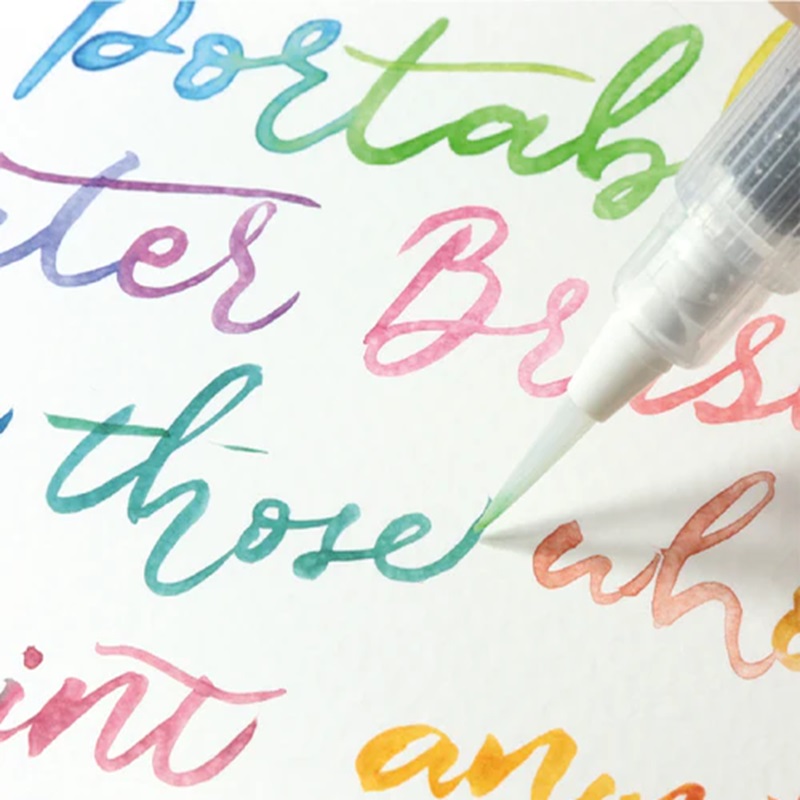 Portab
ter Brus
those who
int any